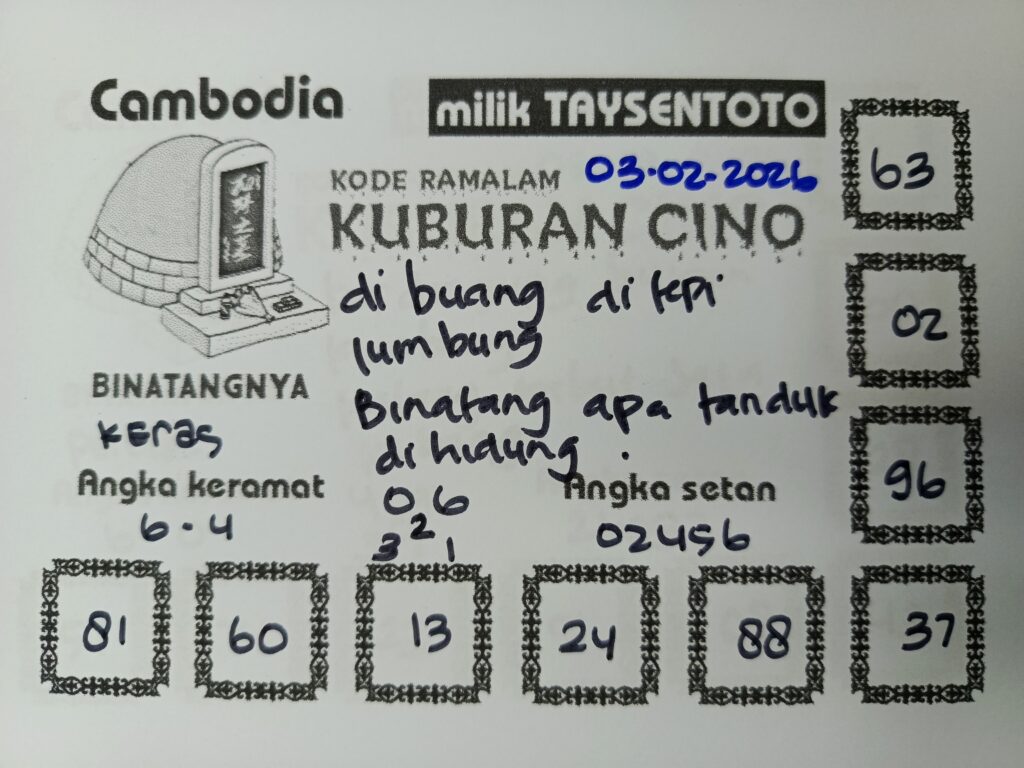 Cambodia
milik TAYSENTOTO
KODE RAMALAM 03-02-2026
KUBURAN CINO
di buang di tepi
lumbung
BINATANGNYA
Keras
Binatang apa tanduk
di hidung .
Angka keramat
6 - 4
0 6
3 2 1
Angka setan
02456
63
02
96
81 60 13 24 88 37